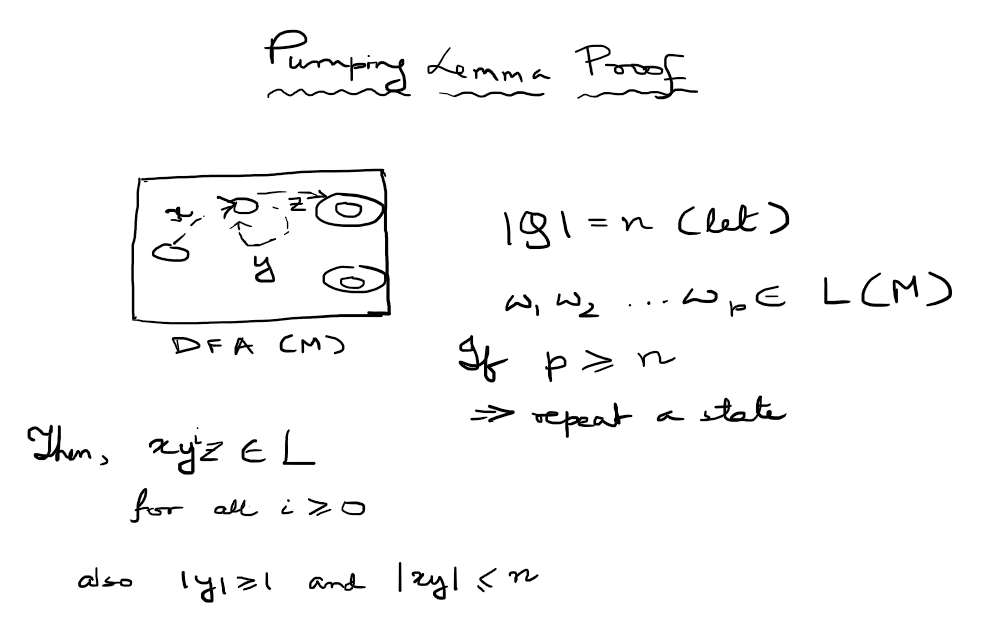 Pumping Lemma Proof
x
z
y
DFA (M)
|Q| = n (let)
w₁ w₂ ... wₚ ∈ L(M)
If p ⩾ n
⇒ repeat a state
Then, xyⁱz ∈ L
for all i ⩾ 0
also |y| ⩾ 1 and |xy| ⩽ n